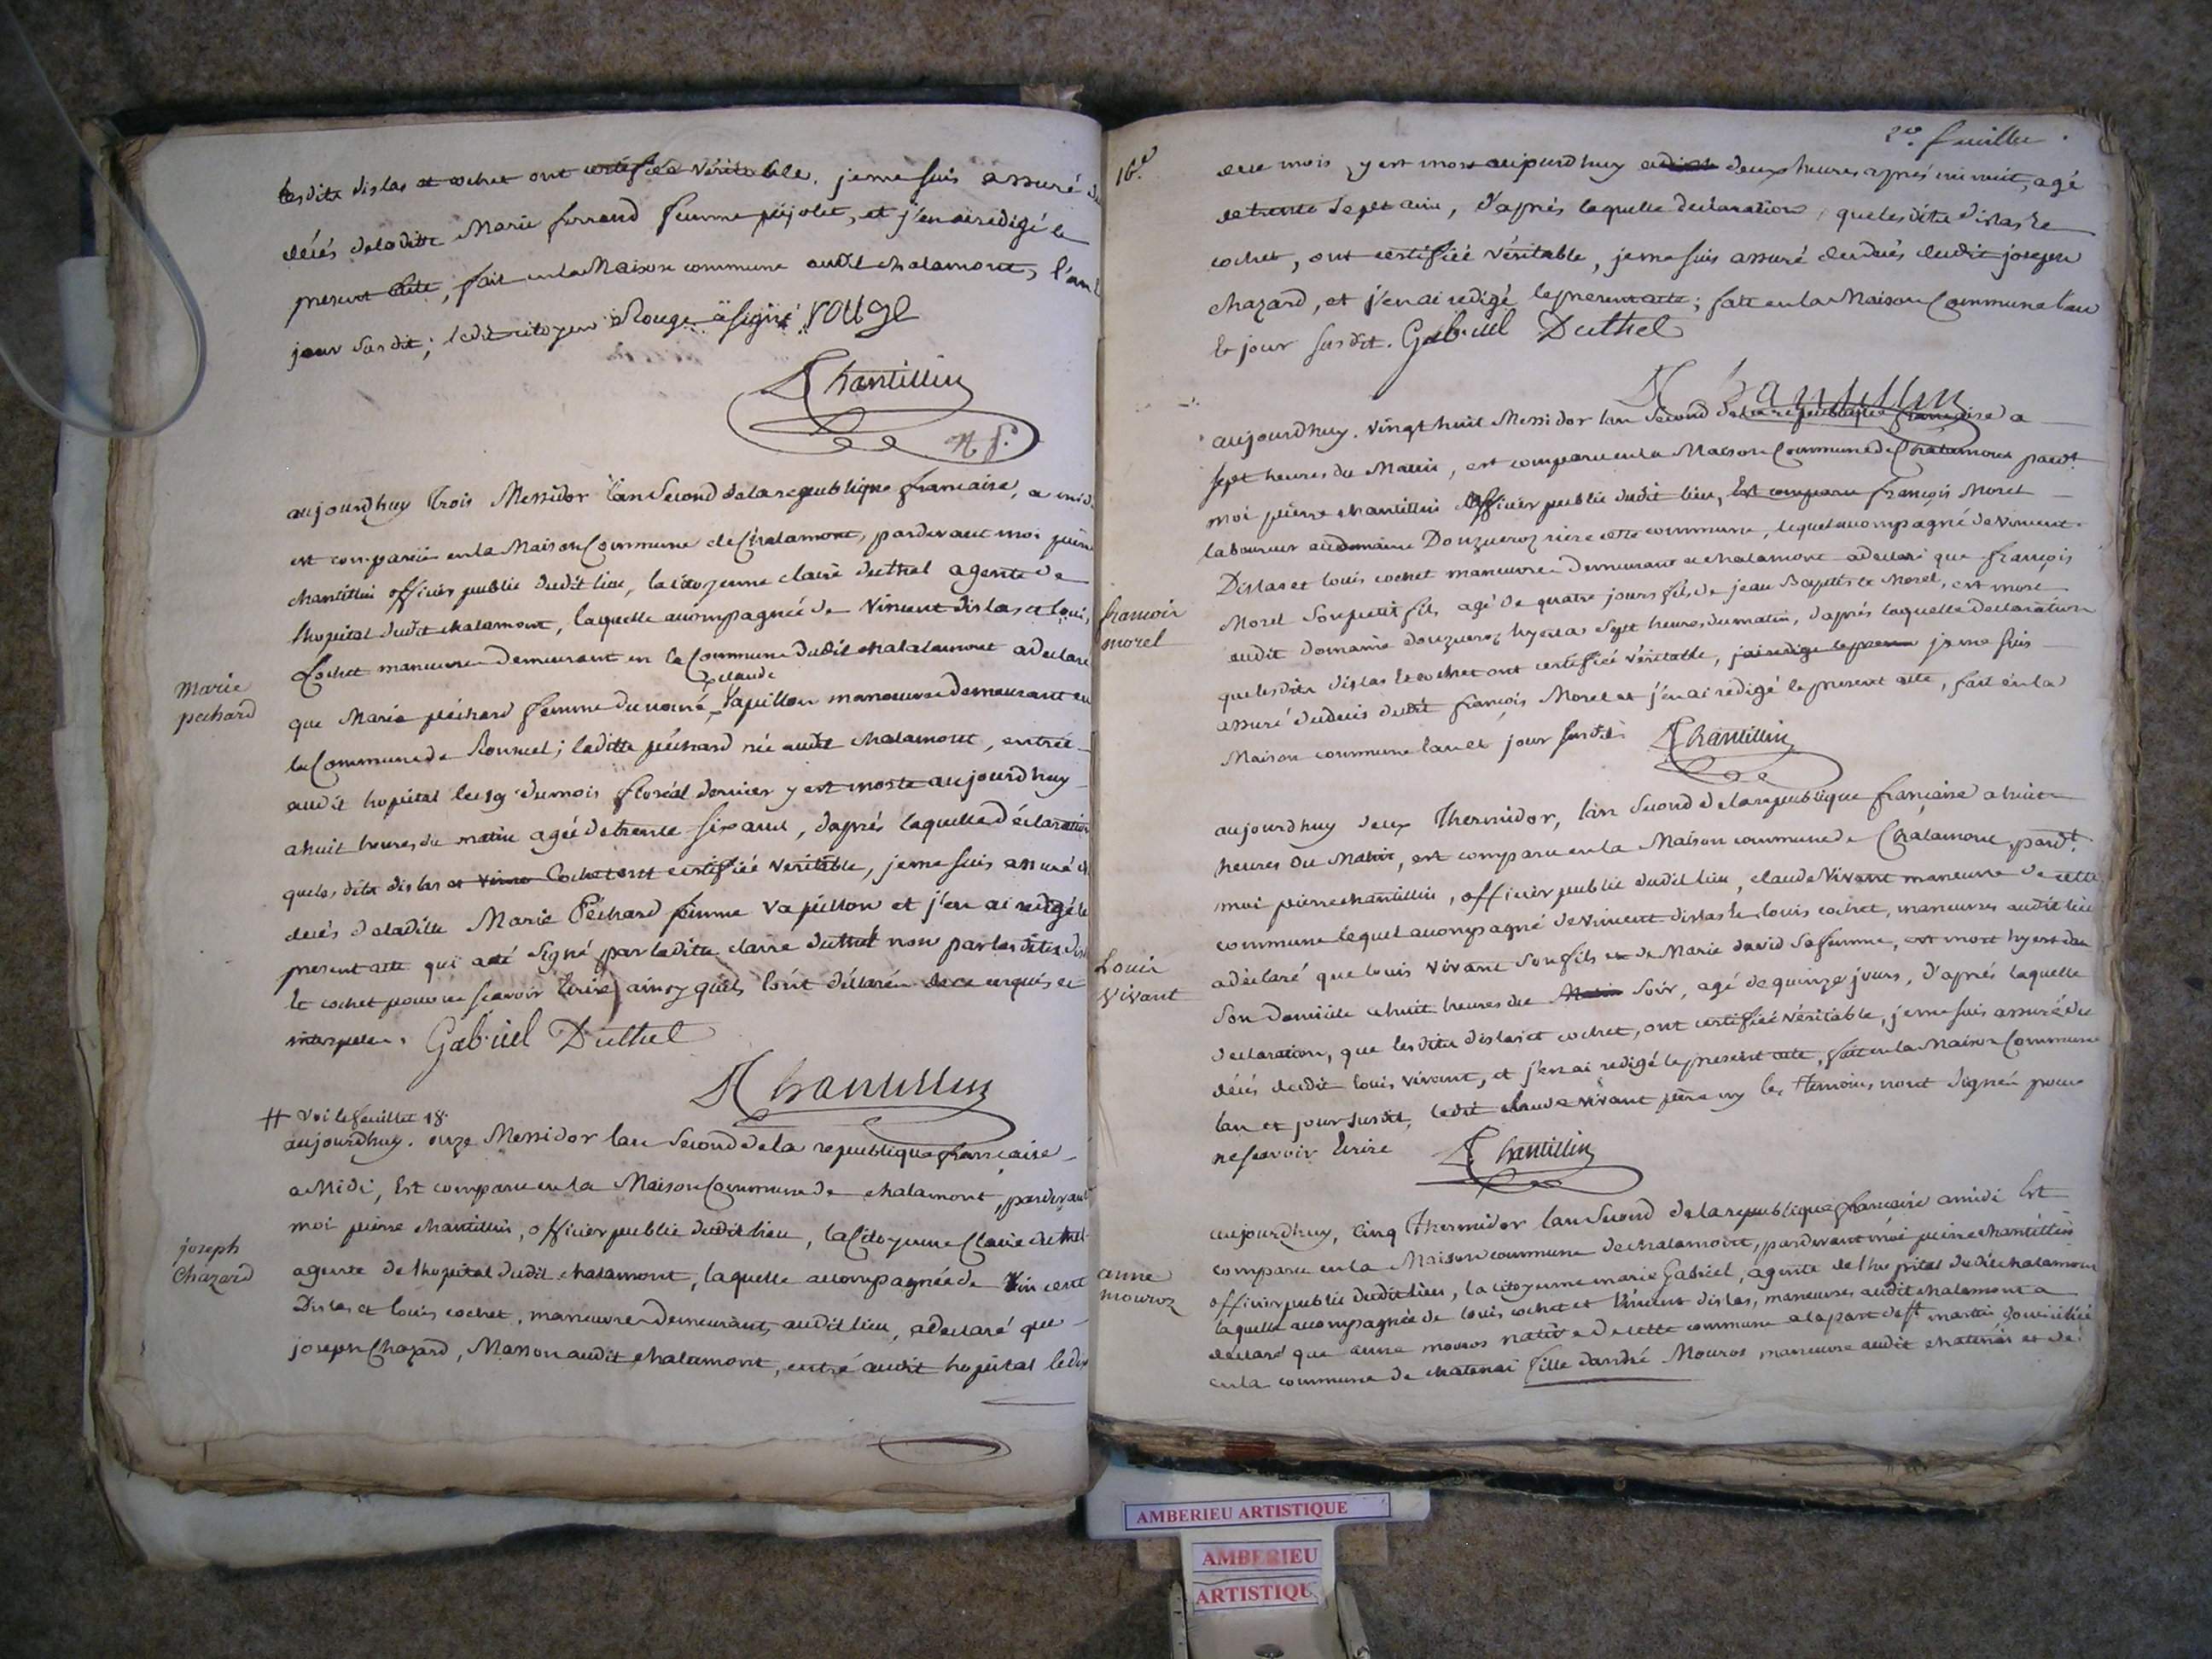 lesdits dislas et cochet ont certifiée véritable. je me suis assuré du
décés de laditte Marie ferrand femme pijolet, et j'en ai redigé le
present acte, fait en la Maison commune audit chalamont, l'an et
jour susdit; ledit citoyen Rouge a signé rouge
Chantillin
N P.
aujourdhuy Trois Messidor lan second de la republique francaise, a midi
est comparüe en la Maison Commune de Chalamont, pardevant moi pierre
chantillin officier public dudit lieu, la citoyenne claire duthel agente de
lhopital dudit chalamont, laquelle accompagnée de Vincent dislas et louis
Cochet maneuvre demeurant en la Commune dudit chalalamont a declaré
claude
que Marie péchard femme du nomé Vapillon manoeuvre demeurant en
la Commune de Ronzuel; laditte péchard née audit chalamont, entrée
audit hopital le 19 du mois floréal dernier y est morte aujourdhuy
a huit heures du matin agée de trente six ans, daprés laquelle déclaration
que lesdits dislas et Cochet ont certifiée veritable, je me suis assuré du
décés de ladite Marie Péchard femme vapillon et j'en ai redigé le
present acte qui a été signé par laditte claire duthel non par lesdits dislas
et cochet pour ne scavoir Ecrire ainsy quils l'ont déclaré de ce enquis et
interpellés. Gabriel Duthel
Chantillin
marie
pechard
# Voi le feuillet 18
aujourdhuy. onze Messidor lan Second de la republique francaise
a Midi, Est comparu en la Maison Commune de chalamont, pardevant
moi pierre chantillin, officier public dudit lieu, la Citoyenne Claire duthel
agente de lhopital dudit chalamont, laquelle accompagnée de Vincent
Dislas et louis cochet, maneuvre demeurants audit lieu, a declaré que
joseph Chazard, Masson audit chalamont, entré audit hopital le dix
joseph
Chazard
16.e
2e. feuillet
du mois, y est mort aujourdhuy a deux heures aprés minuit, agé
de trente sept ans, d'aprés laquelle declaration, que lesdits dislas et
cochet, ont certifiée véritable, je me suis assuré du decés dudit joseph
chazard, et j'en ai redigé le present acte; fait en la Maison Commune l'an
et jour susdit. Gabriel Duthel
Chantillin
aujourdhuy. vingt huit Messidor lan Second de la republique francaise a
sept heures du Matin, est comparu en la Maison Commune de Chalamont pardt.
moi pierre chantillin officier public dudit lieu, Est comparu françois Morel
laboureur au domaine Donzueroz riere cette commune, lequel accompagné de Vincent
Dislas et louis cochet maneuvre demeurant a chalamont a declaré que françois
Morel Son petit fils agé de quatre jours fils de jean Baptiste Morel, est mort
audit domaine donzueroz hyer a Sept heures du matin, daprés laquelle declaration
que lesdits dislas et cochet ont certifiée véritable, jai redigé le presen je me suis
assuré du decés dudit françois Morel et j'en ai rédigé le present acte, fait en la
Maison commune lan et jour susdit Chantillin
francoir
morel
aujourdhuy deux Thermidor, lan Second de la republique francaise a huit
heures du Matin, est comparu en la Maison commune de Chalamont, pardt.
moi pierre chantillin, officier public dudit lieu, claude Vivant maneuvre de cette
commune lequel accompagné de Vincent dislas et louis cochet, maneuvres audit lieu
a declaré que louis vivant son fils et de Marie david Sa femme, est mort hyer dan
Son domicile a huit heures du Matin Soir, agé de quinze jours, d'aprés laquelle
declaration, que lesdits dislas et cochet, ont certifiée véritable, je me suis assuré du
décés dudit louis vivant, et j'en ai redigé le present acte, fait en la Maison Commune
lan et jour susdit, ledit claude vivant père ny les témoins, n'ont signés pour
ne scavoir Ecrire Chantillin
Louis
Vivant
aujourdhuy, Cinq Thermidor lan Second de la republique francaise a midi Est
comparu en la Maison commune de chalamont, pardevant moi pierre chantillin
officier public dudit lieu, la citoyenne marie Gabriel, agente de l'hopital dudit chalamont
laquelle accompagnée de louis cochet et Vincent dislas, maneuvres audit chalamont a
declaré que anne mouros native de cette commune a la part de St martin domiciliée
en la commune de chatenai fille dandré Mouros maneuvre audit chatenai et de
anne
mouroz
AMBERIEU ARTISTIQUE
AMBERIEU
ARTISTIQU